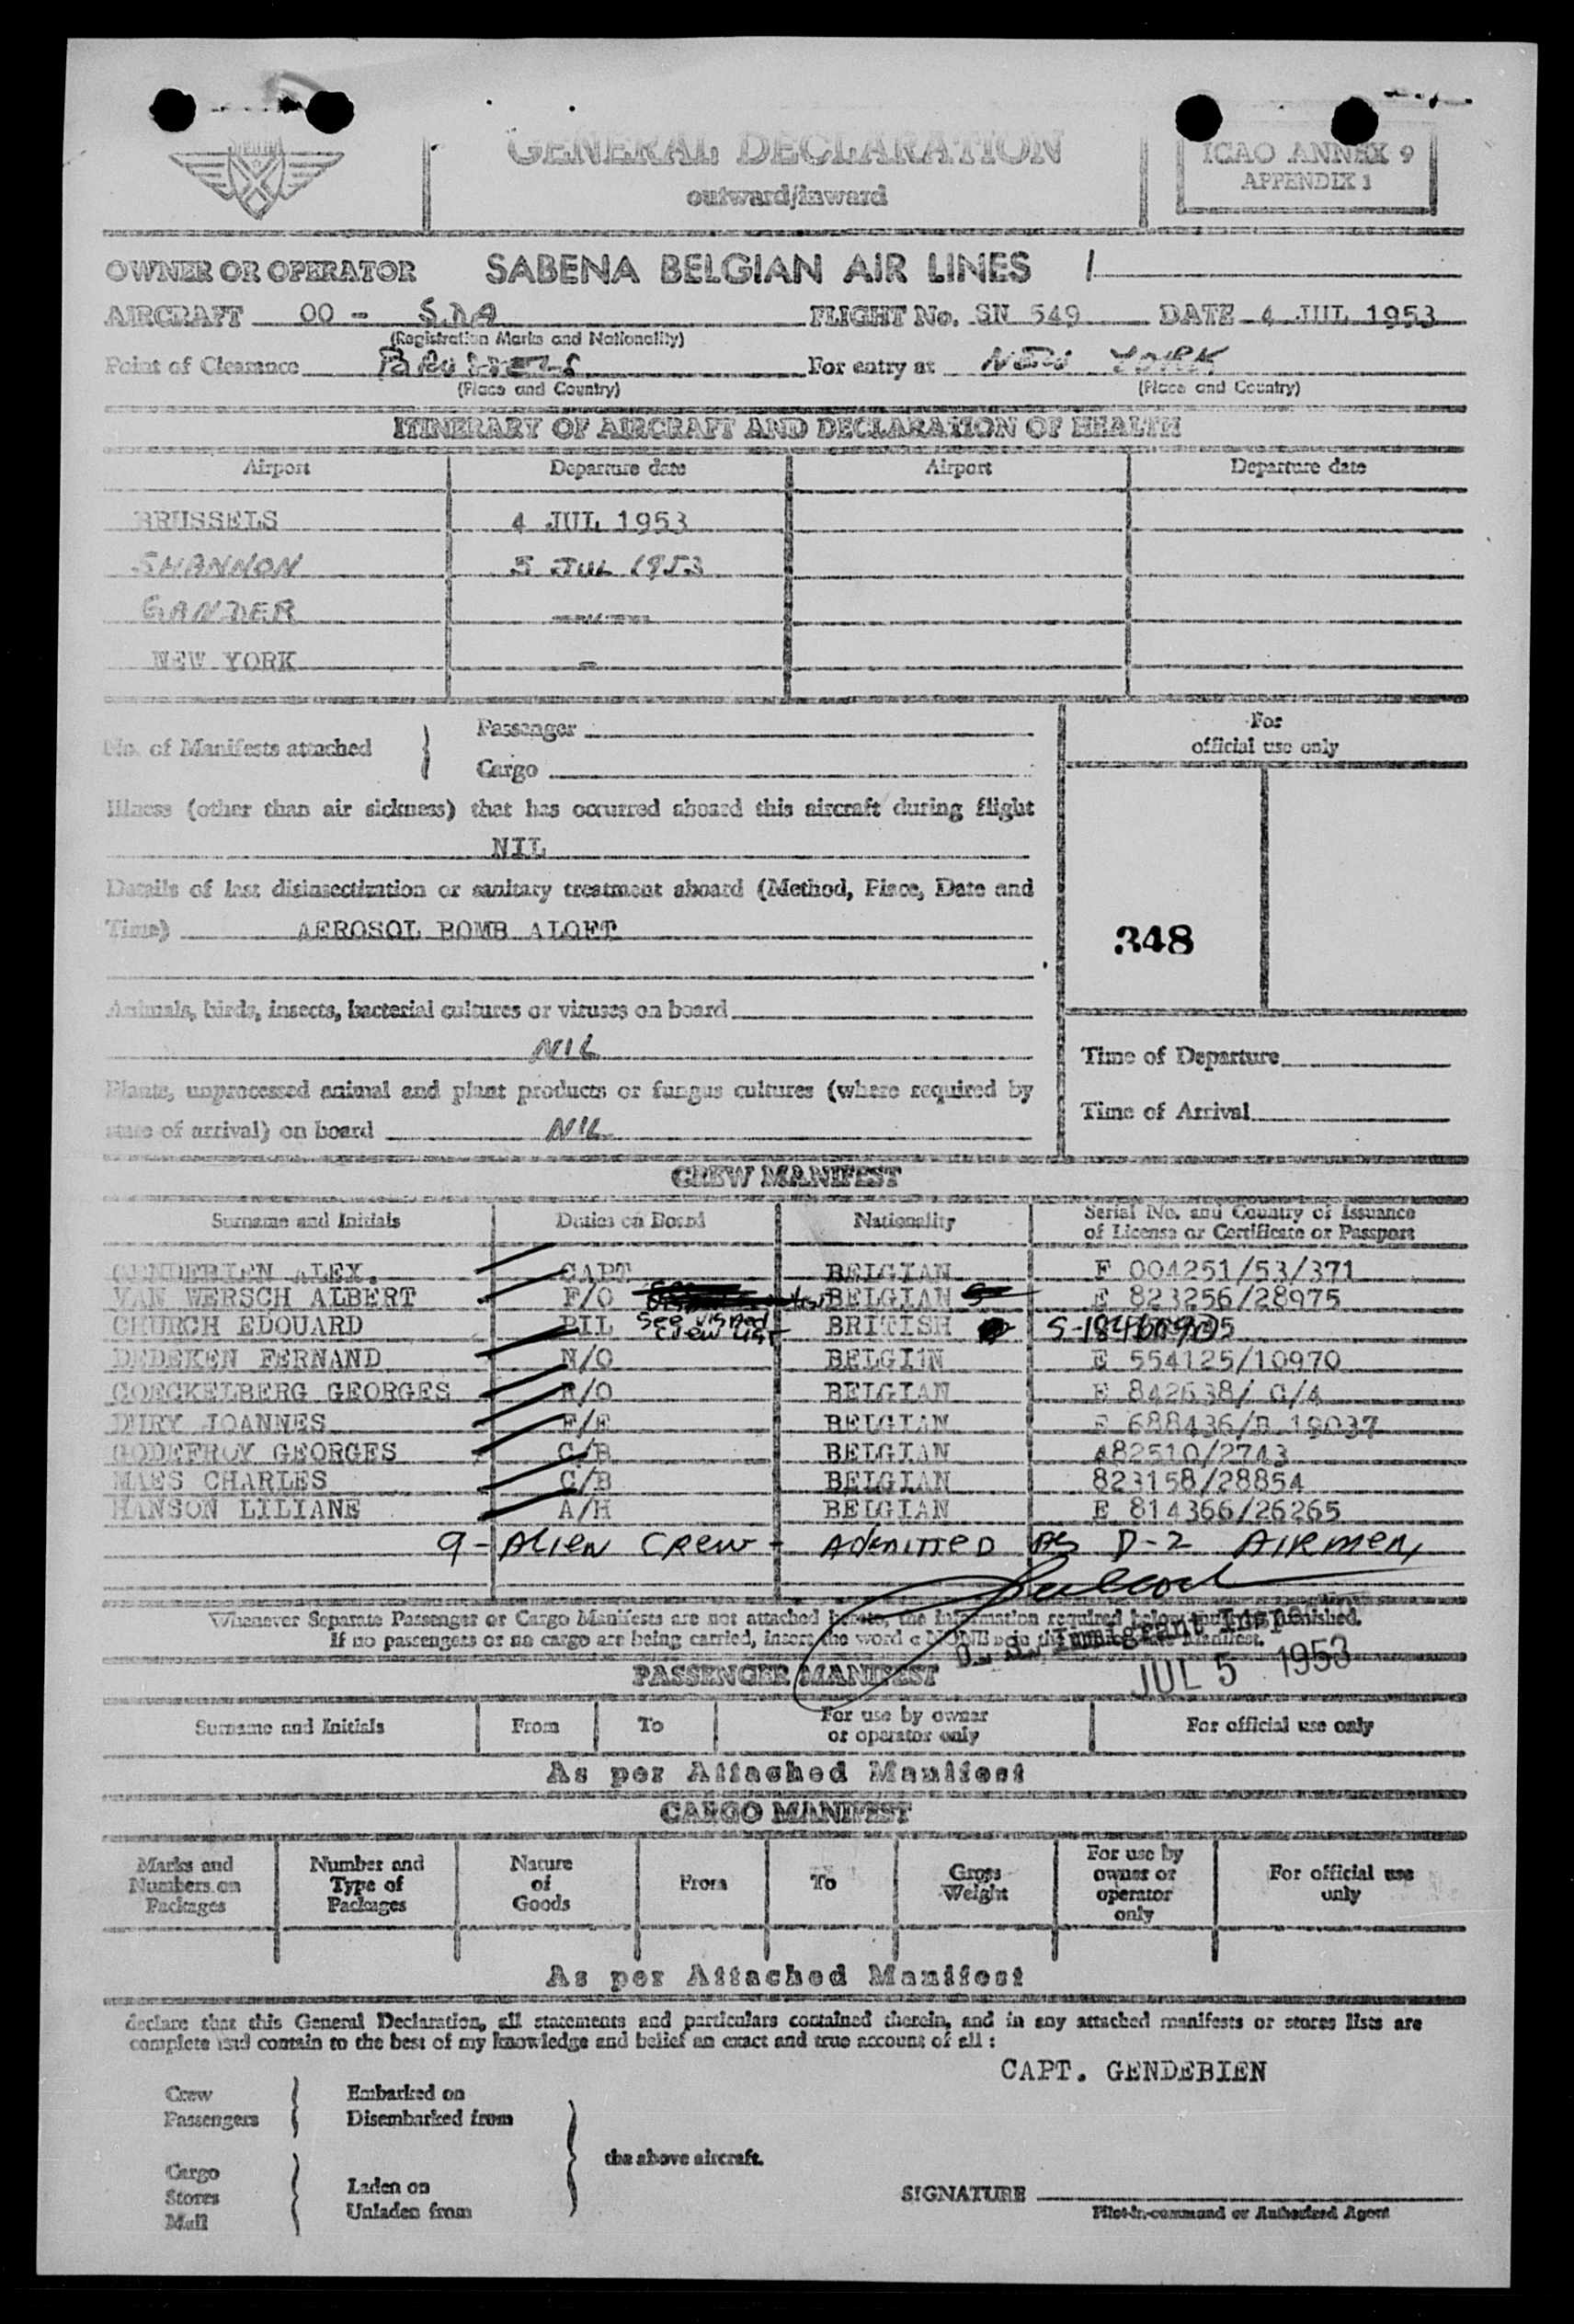 GENERAL DECLARATION
outward/inward
ICAO ANNEX 9
APPENDIX 1
OWNER OR OPERATOR SABENA BELGIAN AIR LINES
AIRCRAFT OO - SDA FLIGHT No. SN 549 DATE 4 JUL 1953
(Registration Marks and Nationality)
Point of Clearance BRUSSELS For entry at NEW YORK
(Place and Country) (Place and Country)
ITINERARY OF AIRCRAFT AND DECLARATION OF HEALTH
Airport Departure date Airport Departure date
BRUSSELS 4 JUL 1953
SHANNON 5 JUL 1953
GANDER
NEW YORK -
No. of Manifests attached } Passenger
Cargo
For
official use only
Illness (other than air sickness) that has occurred aboard this aircraft during flight
NIL
Details of last disinsectization or sanitary treatment aboard (Method, Place, Date and
Time) AEROSOL BOMB ALOFT
348
Animals, birds, insects, bacterial cultures or viruses on board
NIL
Time of Departure
Plants, unprocessed animal and plant products or fungus cultures (where required by
state of arrival) on board NIL
Time of Arrival
CREW MANIFEST
Surname and Initials Duties on Board Nationality Serial No. and Country of Issuance
of License or Certificate or Passport
GENDEBIEN ALEX. CAPT BELGIAN F 004251/53/371
VAN WERSCH ALBERT F/O BELGIAN E 823256/28975
CHURCH EDOUARD PIL See visaed crew list BRITISH
DEDEKEN FERNAND N/O BELGI1N E 554125/10970
GOECKELBERG GEORGES R/O BELGIAN E 842638/ C/4
DURY JOANNES F/E BELGIAN E 688436/B 19037
GODEFROY GEORGES C/B BELGIAN 482510/2743
MAES CHARLES C/B BELGIAN 823158/28854
HANSON LILIANE A/H BELGIAN E 814366/26265
9 - Alien Crew - Admitted As D-2 Airmen,
Whenever Separate Passenger or Cargo Manifests are not attached hereto, the information required below must be furnished.
If no passengers or no cargo are being carried, insert the word « NONE » in the Manifest.
U. S. Immigrant Insp.
JUL 5 1953
PASSENGER MANIFEST
Surname and Initials From To For use by owner
or operator only For official use only
As per Attached Manifest
CARGO MANIFEST
Marks and
Numbers on
Packages
Number and
Type of
Packages
Nature
of
Goods
From
To
Gross
Weight
For use by
owner or
operator
only
For official use
only
As per Attached Manifest
declare that this General Declaration, all statements and particulars contained therein, and in any attached manifests or stores lists are
complete and contain to the best of my knowledge and belief an exact and true account of all :
CAPT. GENDEBIEN
Crew
Passengers
Embarked on
Disembarked from
the above aircraft.
Cargo
Stores
Mail
Laden on
Unladen from
SIGNATURE
Pilot-in-command or Authorized Agent